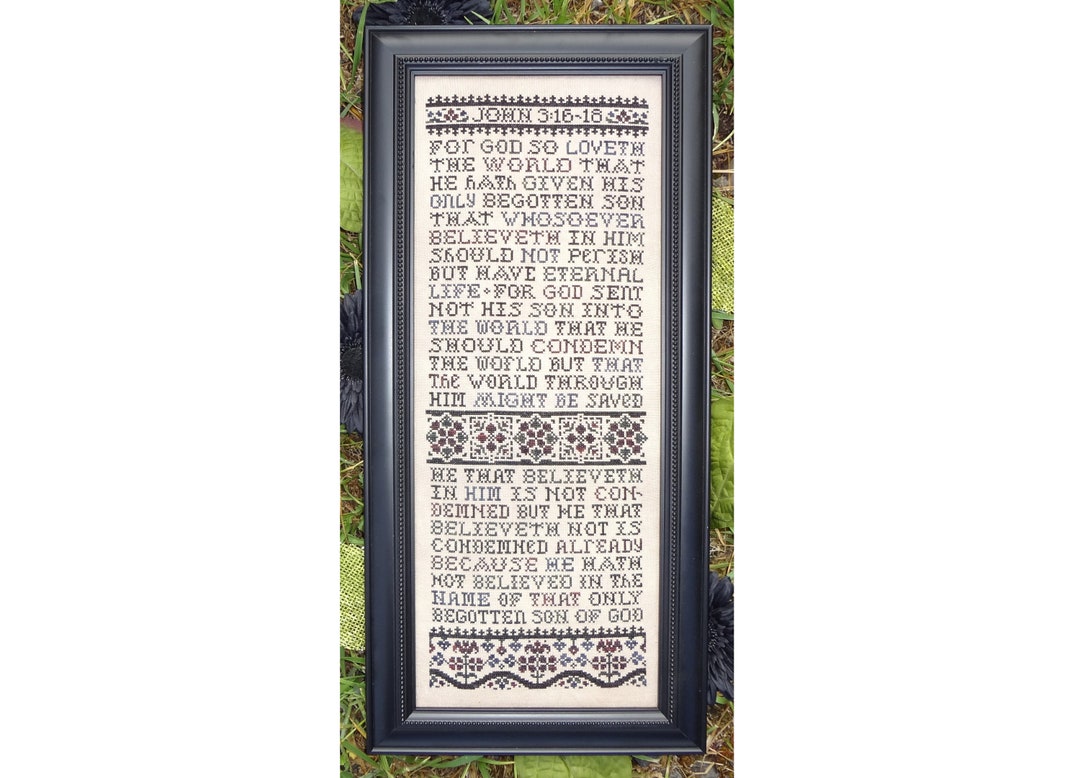 JOHN 3:16-18
FOR GOD SO LOVETH
THE WORLD THAT
HE hATh GIVEN HIS
ONLY BEGOTTEN SON
THAT WHOSOEVER
BELIEVETH IN HIM
ShOULD NOT PeRISH
BUT HAVE ETERNAL
LIFE • FOR GOD SENT
NOT HIS SON INTO
THE WORLD THAT HE
SHOULD CONDEMN
THE WORLD BUT THAT
The WORLD THROUGH
HIM MIGHT BE SAVeD
HE THAT BELIEVETH
IN HIM IS NOT CON-
DEMNED BUT HE THAT
BELIEVETH NOT IS
CONDEMNeD ALREADY
BECAUSE HE HATH
NOT BELIEVED IN The
NAME OF THAT ONLY
BEGOTTEN SON OF GOD